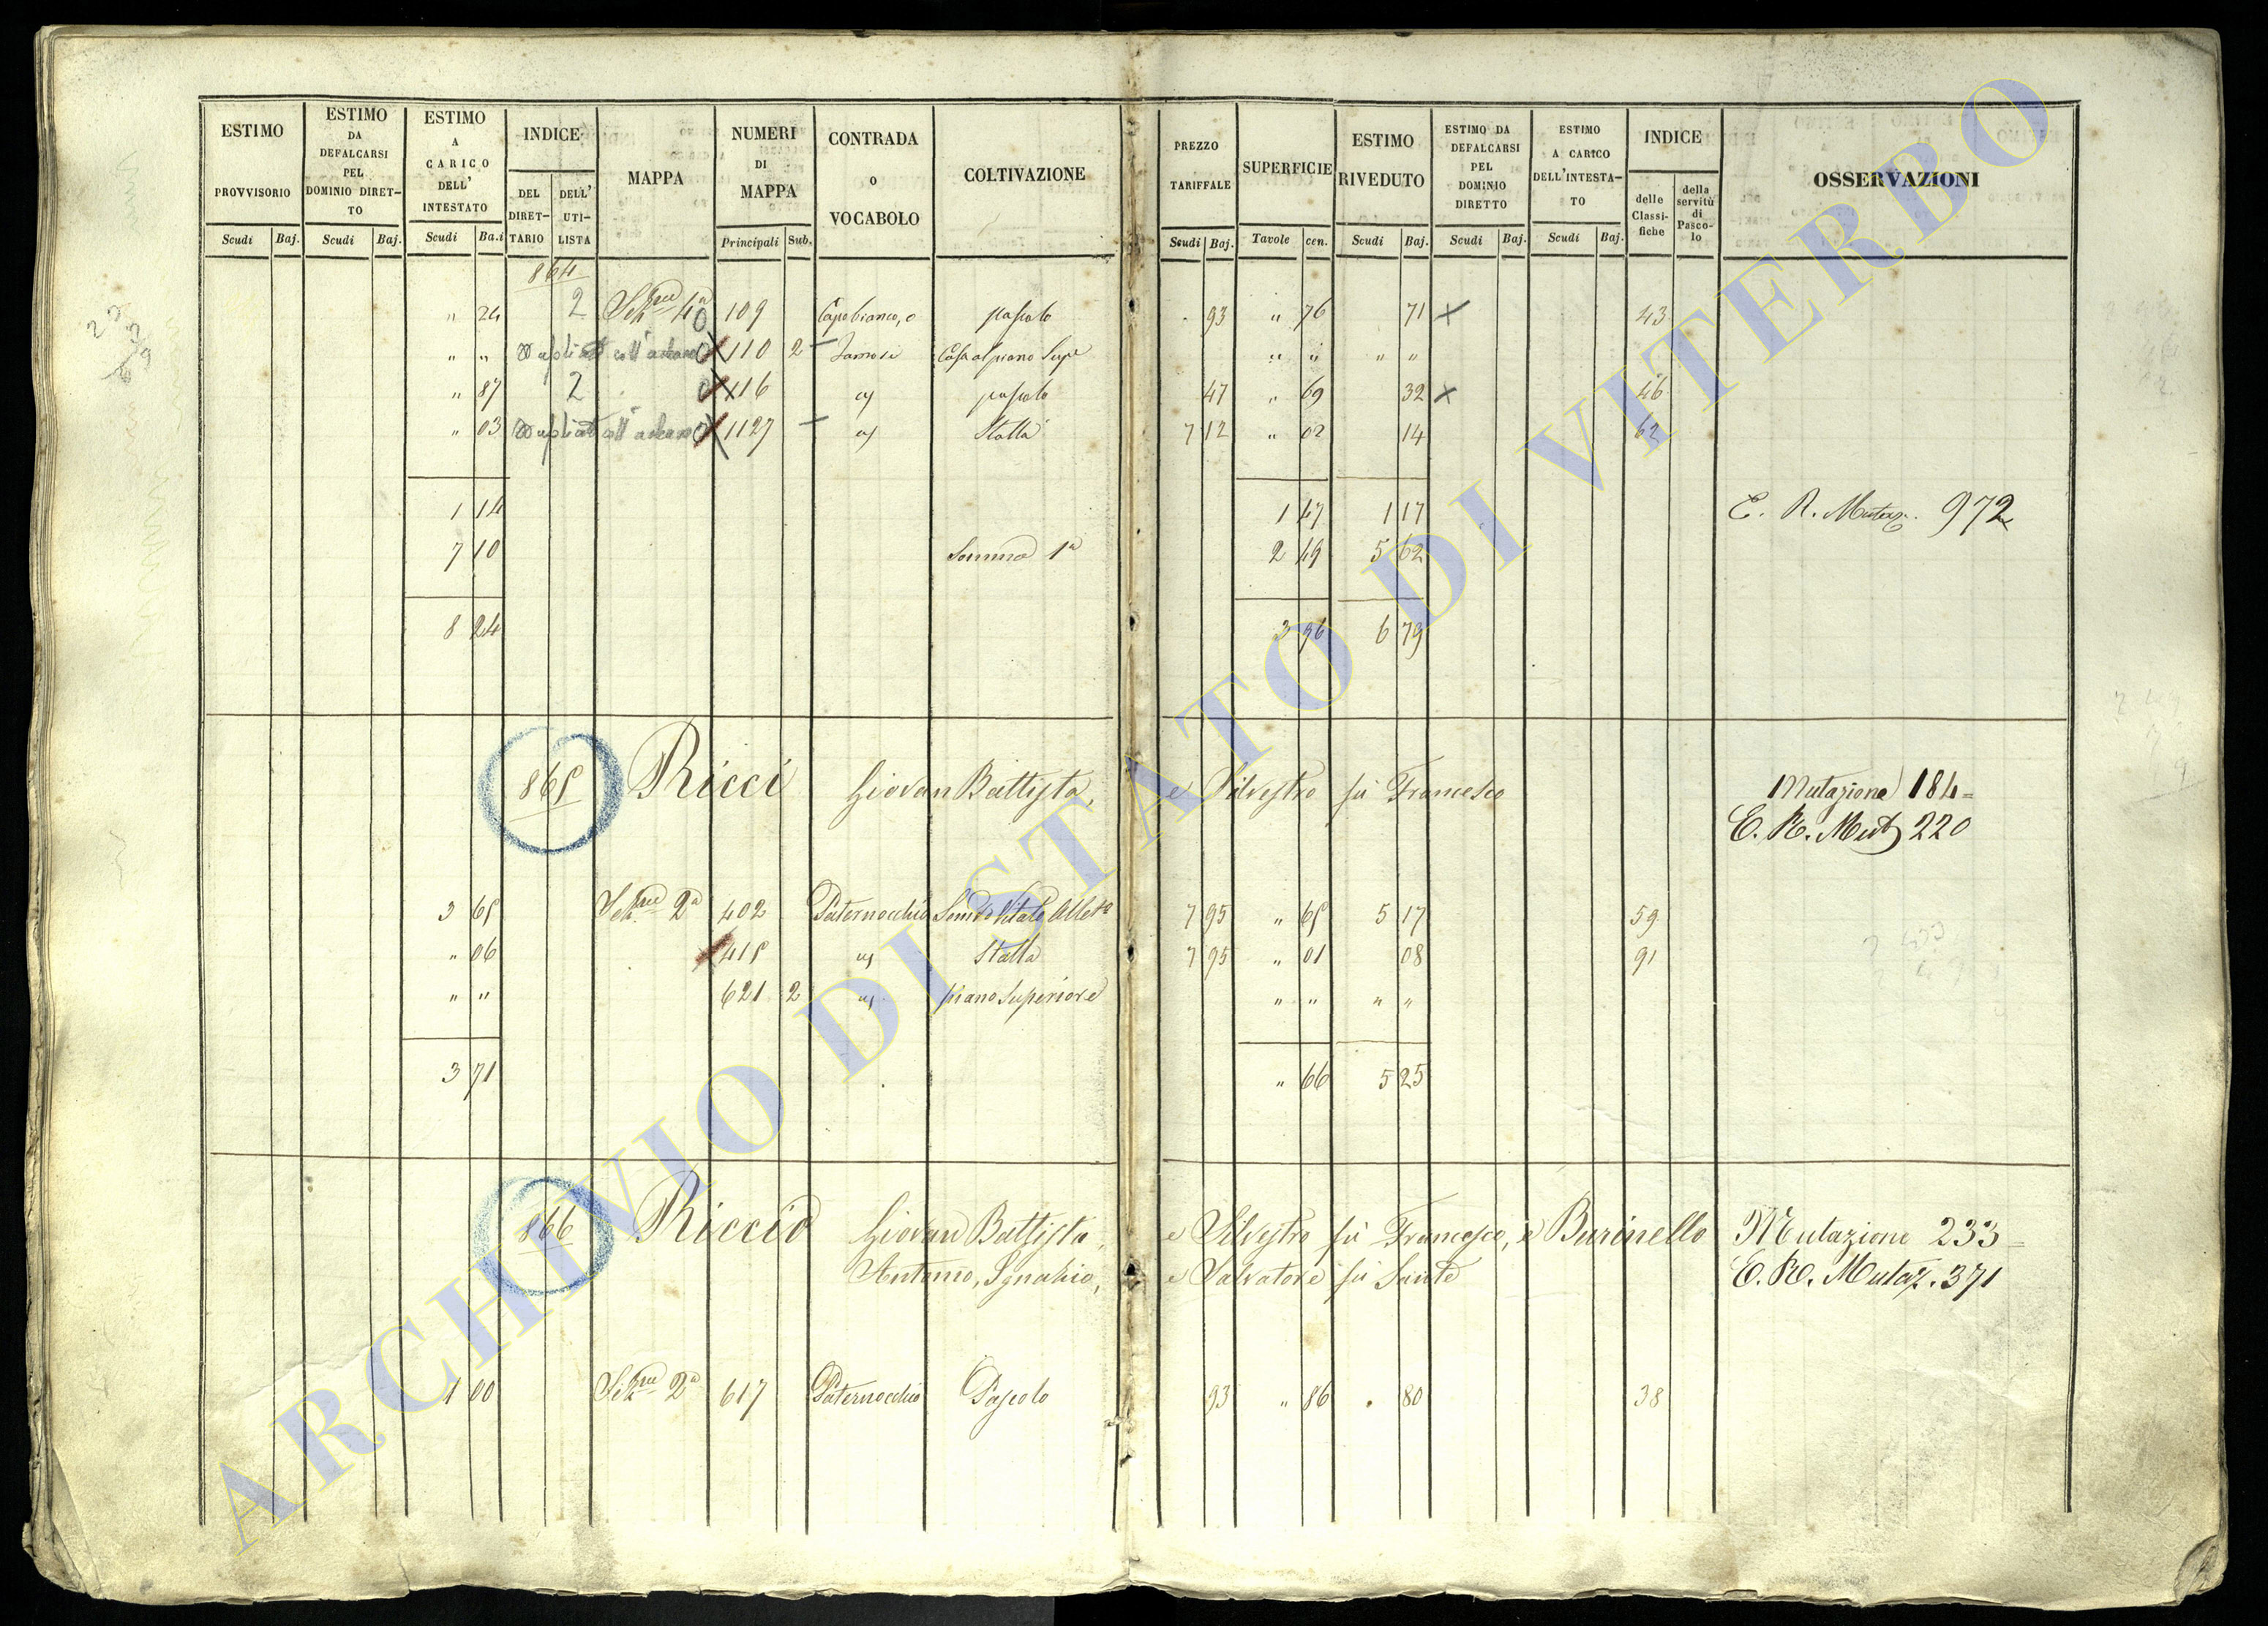 ESTIMO PROVVISORIO Scudi Baj.
ESTIMO DA DEFALCARSI PEL DOMINIO DIRETTO Scudi Baj.
ESTIMO A CARICO DELL' INTESTATO Scudi Ba.i
INDICE DEL DIRETTARIO DELL' UTILISTA
MAPPA
NUMERI DI MAPPA Principali Sub.
CONTRADA O VOCABOLO
COLTIVAZIONE
PREZZO TARIFFALE Scudi Baj.
SUPERFICIE Tavole cen.
ESTIMO RIVEDUTO Scudi Baj.
ESTIMO DA DEFALCARSI PEL DOMINIO DIRETTO Scudi Baj.
ESTIMO A CARICO DELL'INTESTATO Scudi Baj.
INDICE delle Classifiche della servitù di Pascolo
OSSERVAZIONI
864
" 24 2 Sez.ne 4a 109 Capobianco, o pascolo . 93 " 76 71 × 43
" " 110 2 Casa al piano Supe " " " "
" 87 2 116 id pascolo 47 " 69 32 × 46
" 03 1127 id Stalla 7 12 " 02 14 62
1 14 1 47 1 17 E. R. Mutaz. 972
7 10 Somma 1a 2 49 5 62
8 24 3 96 6 79
865 Ricci Giovan Battista, e Silvestro fù Francesco Mutazione 184=
E. R. Mut 220
3 65 Sez.ne 2a 402 Paternocchio 7 95 " 65 5 17 59
" 06 415 id Stalla 7 95 " 01 08 91
" " 621 2 id piano Superiore " " " "
3 71 " 66 5 25
866 Riccio Giovan Battista, e Silvestro fù Francesco, e Burinello Mutazione 233=
Antonio, Ignazio, e Salvatore fù Sante E. R. Mutaz. 371
1 00 Sez.ne 2a 617 Paternocchio Pascolo 93 " 86 . 80 38
ARCHIVIO DI STATO DI VITERBO